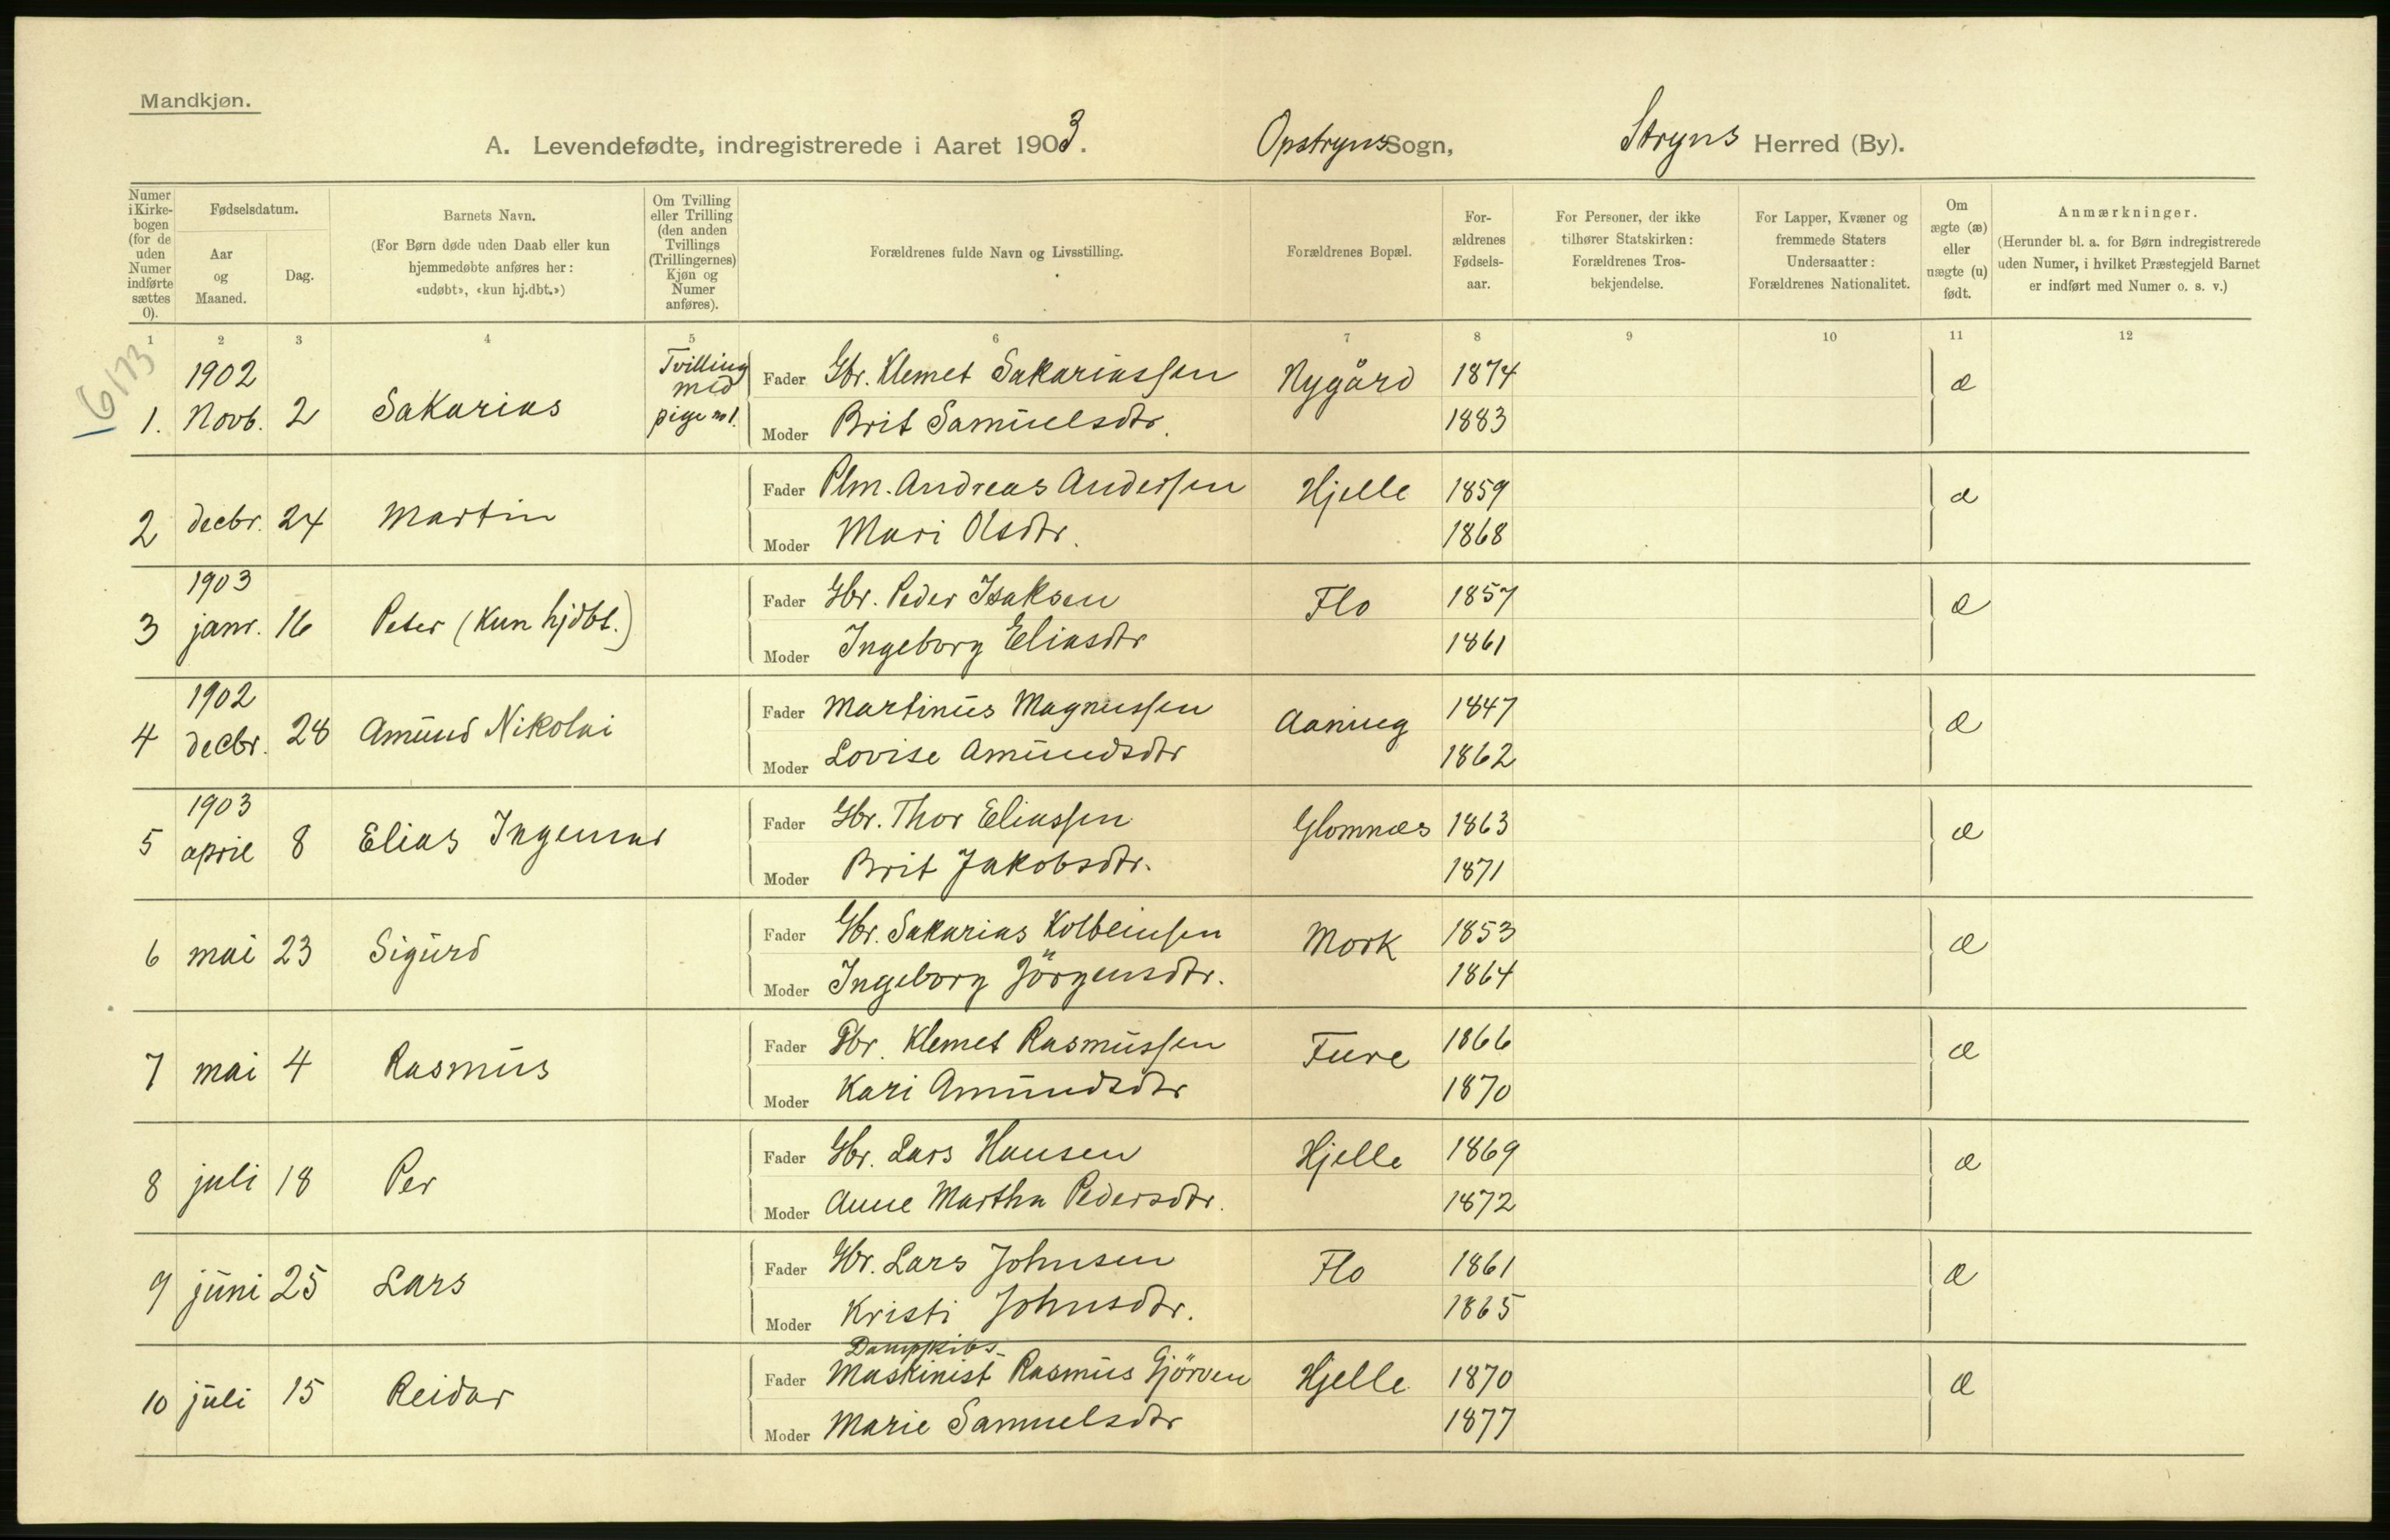 Mandkjøn.
A. Levendefødte, indregistrerede i Aaret 1903. Opstryns Sogn, Stryns Herred (By).
Numer i Kirke-bogen (for de uden Numer indførte sættes 0).
Fødselsdatum.
Aar og Maaned.
Dag.
Barnets Navn.
(For Børn døde uden Daab eller kun hjemmedøbte anføres her: «udøbt», «kun hj.dbt.»)
Om Tvilling eller Trilling (den anden Tvillings (Trillingernes) Kjøn og Numer anføres).
Forældrenes fulde Navn og Livsstilling.
Forældrenes Bopæl.
For-ældrenes Fødsels-aar.
For Personer, der ikke tilhører Statskirken: Forældrenes Tros-bekjendelse.
For Lapper, Kvæner og fremmede Staters Undersaatter: Forældrenes Nationalitet.
Om ægte (æ) eller uægte (u) født.
Anmærkninger.
(Herunder bl. a. for Børn indregistrerede uden Numer, i hvilket Præstegjeld Barnet er indført med Numer o. s. v.)
1 2 3 4 5 6 7 8 9 10 11 12
16/73
1. 1902 Novb. 2 Sakarias Tvilling med pige nr 1. Fader Gbr. Klemet Sakariassen Nygård 1874 æ
Moder Brit Samuelsdtr. 1883
2 decbr. 24 Martin Fader Plm. Andreas Andersen Hjelle 1859 æ
Moder Mari Olsdtr. 1868
3 1903 janr. 16 Peter (kun hjdbt.) Fader Gbr. Peder Isaksen Flo 1857 æ
Moder Ingeborg Eliasdtr 1861
4 1902 decbr. 28 Amund Nikolai Fader Martinus Magnussen Aaning 1847 æ
Moder Lovise Amundsdtr 1862
5 1903 april 8 Elias Ingemar Fader Gbr. Thor Eliassen Glomnæs 1863 æ
Moder Brit Jakobsdtr. 1871
6 mai 23 Sigurd Fader Gbr. Sakarias Kolbeinsen Mork 1853 æ
Moder Ingeborg Jörgensdtr. 1864
7 mai 4 Rasmus Fader Gbr. Klemet Rasmussen Fure 1866 æ
Moder Kari Amundsdtr 1870
8 juli 18 Per Fader Gbr. Lars Hansen Hjelle 1869 æ
Moder Anne Martha Pedersdtr. 1872
9 juni 25 Lars Fader Gbr. Lars Johnsen Flo 1861 æ
Moder Kristi Johnsdtr. 1865
10 juli 15 Reidar Fader Dampskibs- Maskinist Rasmus Gjörven Hjelle 1870 æ
Moder Marie Samuelsdtr 1877